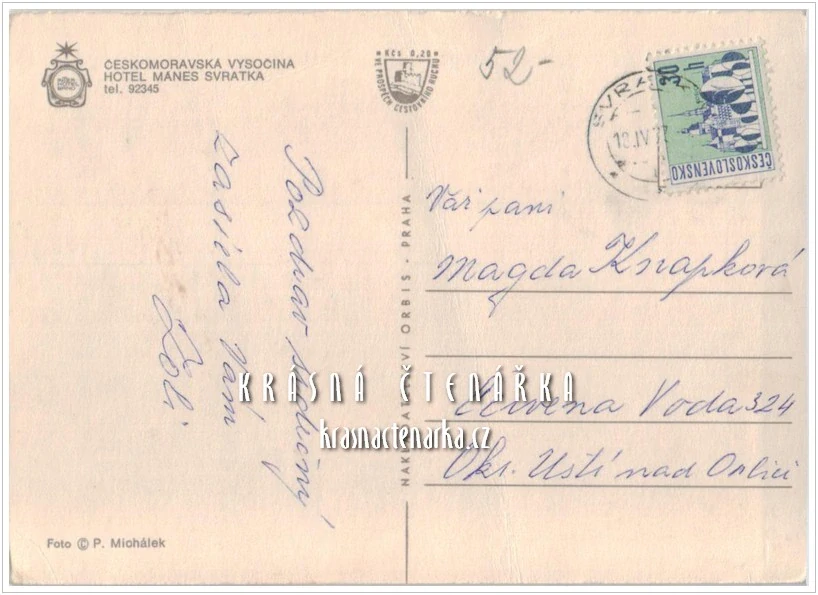 ČESKOMORAVSKÁ VYSOČINA
HOTEL MÁNES SVRATKA
tel. 92345
Kčs 0,20
VE PROSPĚCH CESTOVNÍHO RUCHU
52-
SVRAT
18.IV.
30
h
ČESKOSLOVENSKO
Pozdrav srdečný
zasílá Vám
Vář paní
Magda Knapková
Červená Voda 324
Okr. Ústí nad Orlicí
ORBIS - PRAHA
KRÁSNÁ ČTENÁŘKA
krasnactenarka.cz
Foto © P. Michálek